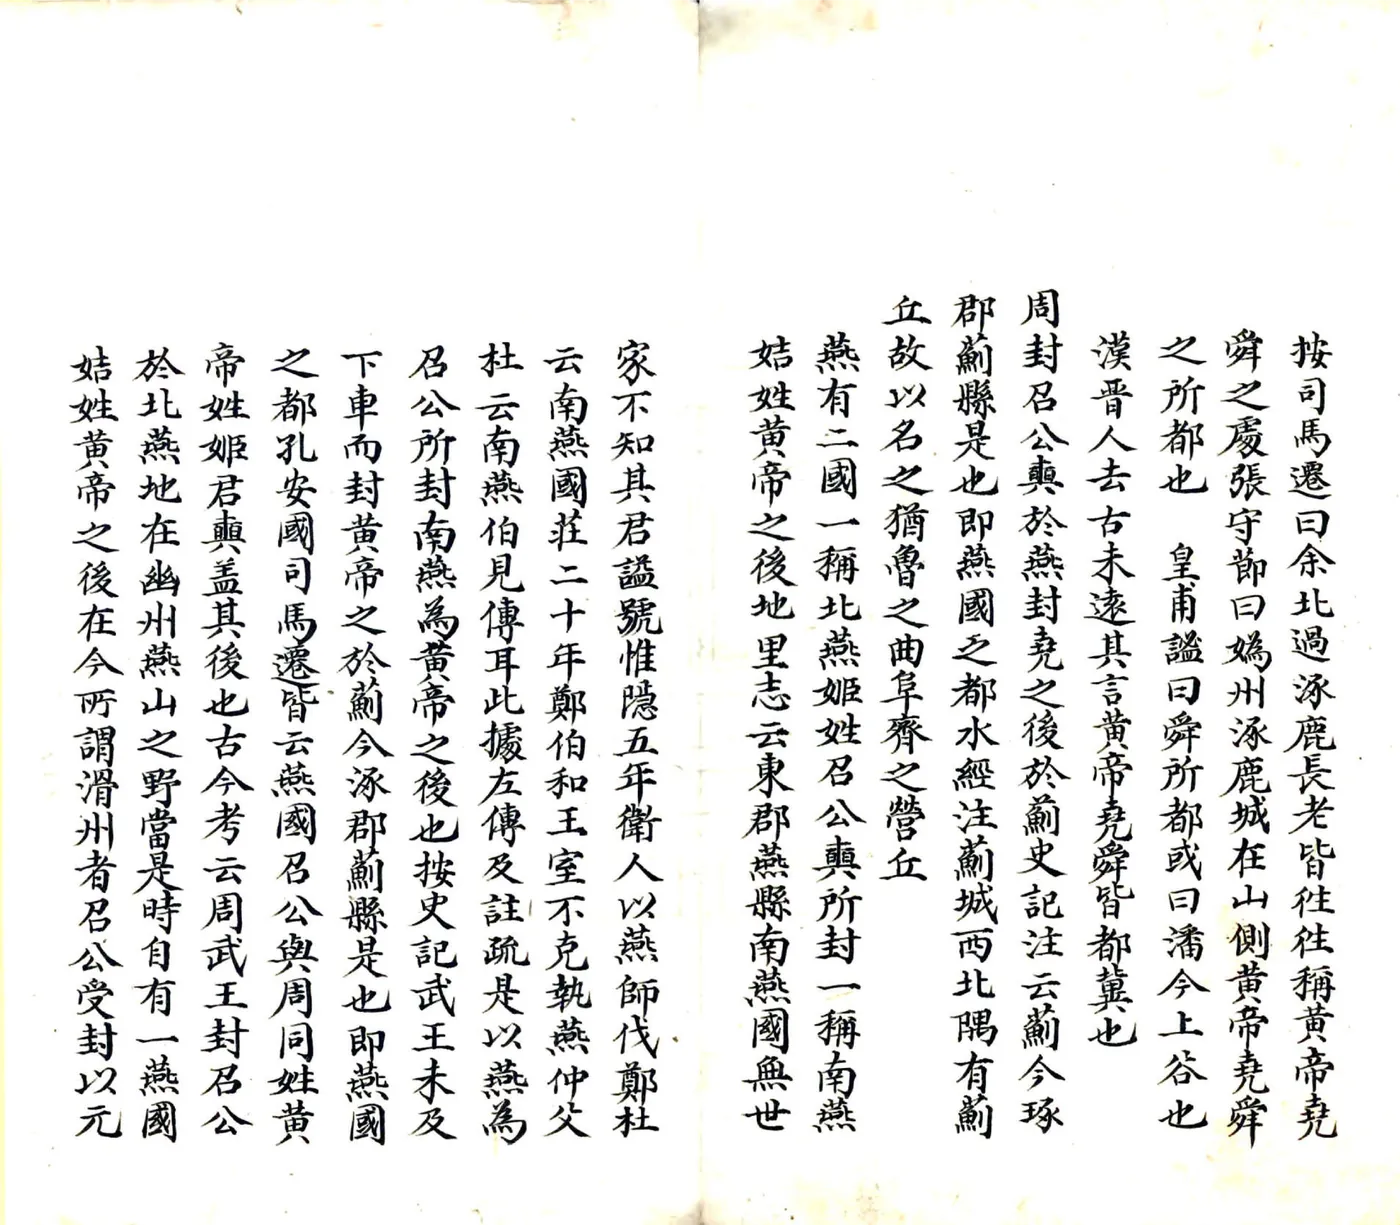 按司馬遷曰余北過涿鹿長老皆徃徃稱黃帝堯
舜之處張守節曰媯州涿鹿城在山側黃帝堯舜
之所都也　皇甫謐曰舜所都或曰潘今上谷也
漢晉人去古未遠其言黃帝堯舜皆都冀也
周封召公奭於燕封堯之後於薊史記注云薊今琢
郡薊縣是也即燕國之都水經注薊城西北隅有薊
丘故以名之猶魯之曲阜齊之營丘
燕有二國一稱北燕姬姓召公奭所封一稱南燕
姞姓黃帝之後地里志云東郡燕縣南燕國無世
家不知其君謚號惟隱五年衛人以燕師伐鄭杜
云南燕國莊二十年鄭伯和王室不克執燕仲父
杜云南燕伯見傳耳此據左傳及註疏是以燕為
召公所封南燕為黃帝之後也按史記武王未及
下車而封黃帝之於薊今涿郡薊縣是也即燕國
之都孔安國司馬遷皆云燕國召公與周同姓黃
帝姓姬君奭盖其後也古今考云周武王封召公
於北燕地在幽州燕山之野當是時自有一燕國
姞姓黃帝之後在今所謂滑州者召公受封以元